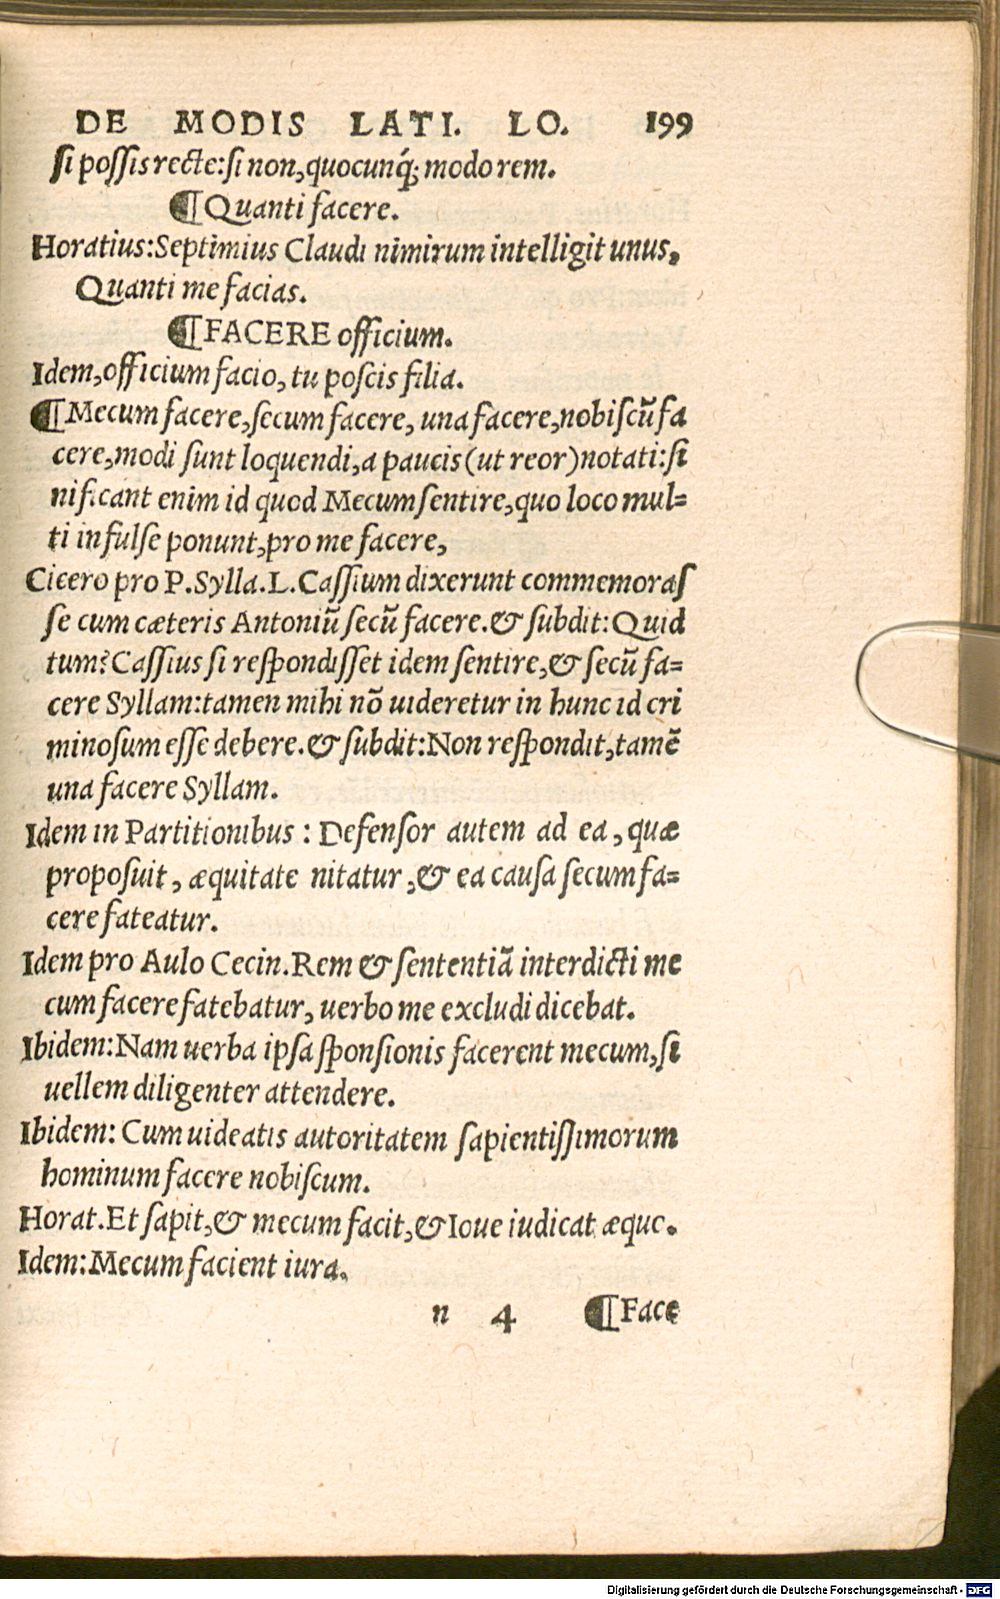 DE MODIS LATI. LO. 199
ſi poſſis recte:ſi non,quocunq́; modo rem.
¶Quanti facere.
Horatius:Septimius Claudi nimirum intelligit unus,
Quanti me facias.
¶FACERE officium.
Idem,officium facio, tu poſcis filia.
¶Mecum facere,ſecum facere, una facere,nobiſcū fa
cere,modi ſunt loquendi,a paucis(ut reor)notati:ſi
nificant enim id quod Mecum ſentire,quo loco mul=
ti inſulſe ponunt,pro me facere,
Cicero pro P.Sylla.L.Caſſium dixerunt commemoraſ
ſe cum cæteris Antoniū ſecū facere.& ſubdit:Quid
tum?Caſſius ſi reſpondiſſet idem ſentire,& ſecū fa=
cere Syllam:tamen mihi nō uideretur in hunc id cri
minoſum eſſe debere.& ſubdit:Non reſpondit,tamē
una facere Syllam.
Idem in Partitionibus : Defenſor autem ad ea, quæ
propoſuit, æquitate nitatur,& ea cauſa ſecum fa=
cere fateatur.
Idem pro Aulo Cecin.Rem & ſententiā interdicti me
cum facere fatebatur, uerbo me excludi dicebat.
Ibidem:Nam uerba ipſa ſponſionis facerent mecum,ſi
uellem diligenter attendere.
Ibidem: Cum uideatis autoritatem ſapientiſſimorum
hominum facere nobiſcum.
Horat.Et ſapit,& mecum facit,& Ioue iudicat æquo.
Idem:Mecum facient iura.
n 4 ¶Face
Digitalisierung gefördert durch die Deutsche Forschungsgemeinschaft - DFG